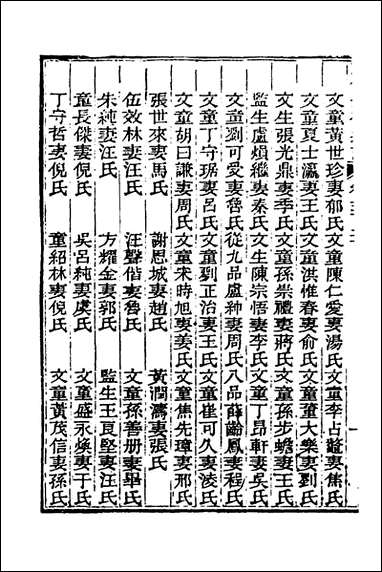 文童黃世珍妻郁氏文童陳仁愛妻湯氏文童李占鼇妻焦氏
文童夏士瀛妻王氏文童洪惟春妻俞氏文童董大樂妻劉氏
文生張光鼎妻季氏文童孫崇禮妻蔣氏文童孫步蟾妻王氏
監生盧煩繼妻秦氏文生陳宗悟妻李氏文童丁昂軒妻吳氏
文童劉可愛妻魯氏從九品盧种妻周氏八品薛齡鳳妻程氏
文童丁守琚妻呂氏文童劉正治妻王氏文童崔可久妻凌氏
文童胡曰謙妻周氏文童宋時旭妻姜氏文童焦先璋妻邢氏
張世來妻馬氏 謝恩城妻趙氏 黃潤濤妻張氏
伍效林妻汪氏 汪聲偕妻魯氏 文童孫善册妻畢氏
朱純妻汪氏 方耀金妻郭氏 監生王艮堅妻汪氏
童長傑妻倪氏 吳呂純妻虞氏 文童盛永煥妻于氏
丁守哲妻倪氏 童紹林妻倪氏 文童黃茂信妻孫氏